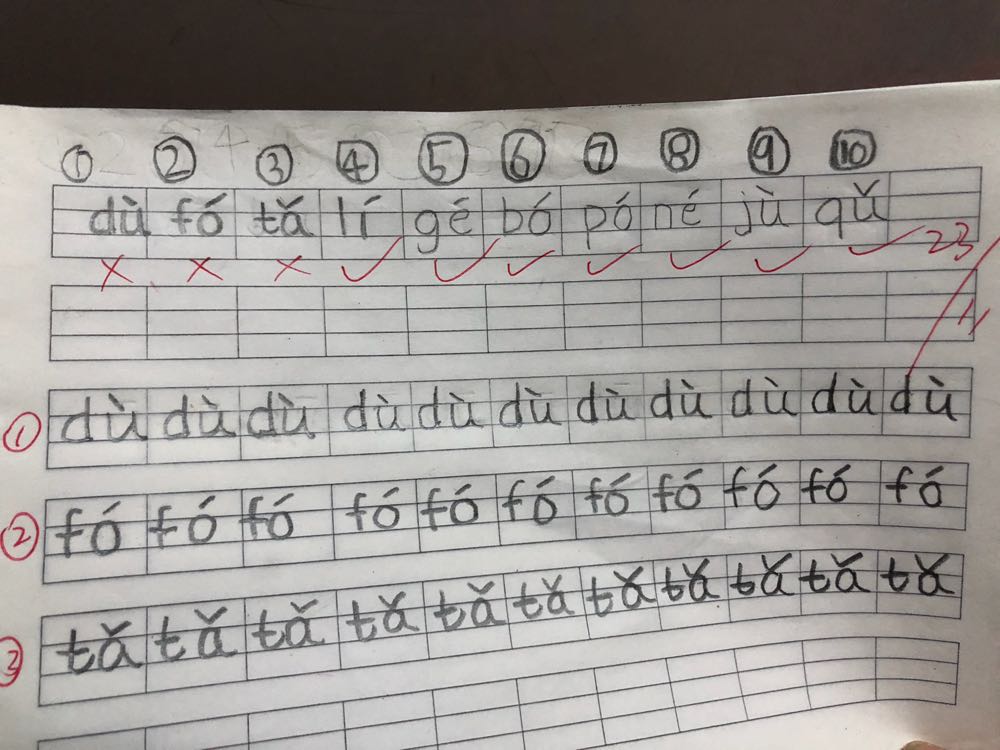 ① ② ③ ④ ⑤ ⑥ ⑦ ⑧ ⑨ ⑩
dù fó tǎ lí gé bó pó né jù qǔ
23
① dù dù dù dù dù dù dù dù dù dù dù
② fó fó fó fó fó fó fó fó fó fó fó
③ tǎ tǎ tǎ tǎ tǎ tǎ tǎ tǎ tǎ tǎ tǎ